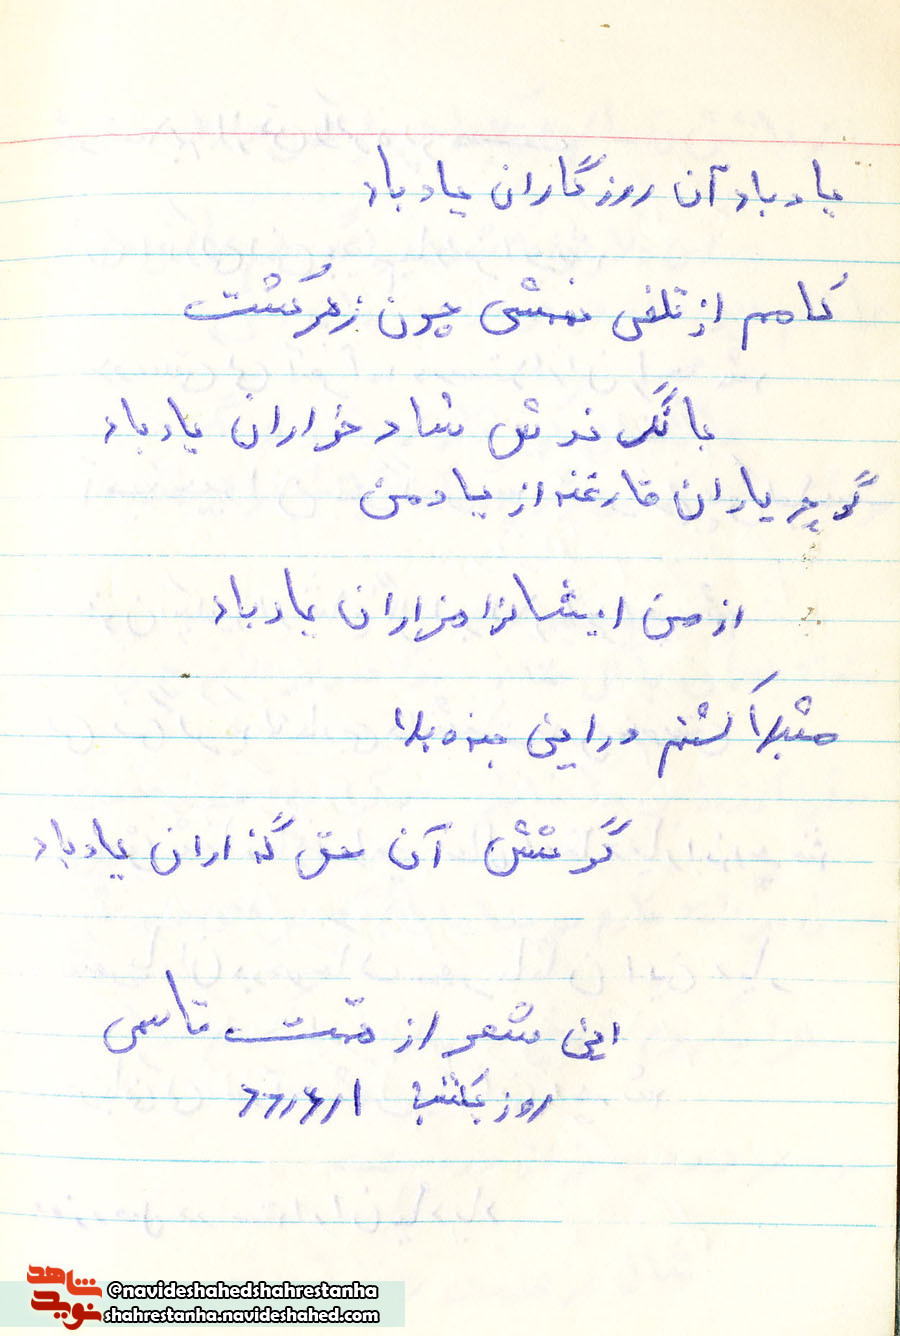 یاد باد آن روزگاران یاد باد
کامم از تلخی غمش چون زهر گشت
بانگ نوش شاد خواران یاد باد
گرچه یاران فارغند از یاد من
از من ایشانرا هزاران یاد باد
مبتلا گشتم در این بند و بلا
کوشش آن حق گذاران یاد باد
این شعر از قاسمی
روز یکشنبه ۶۶٫۶٫۱
شاهد
نوید
©navideshahedshahrestanha
shahrestanha.navideshahed.com